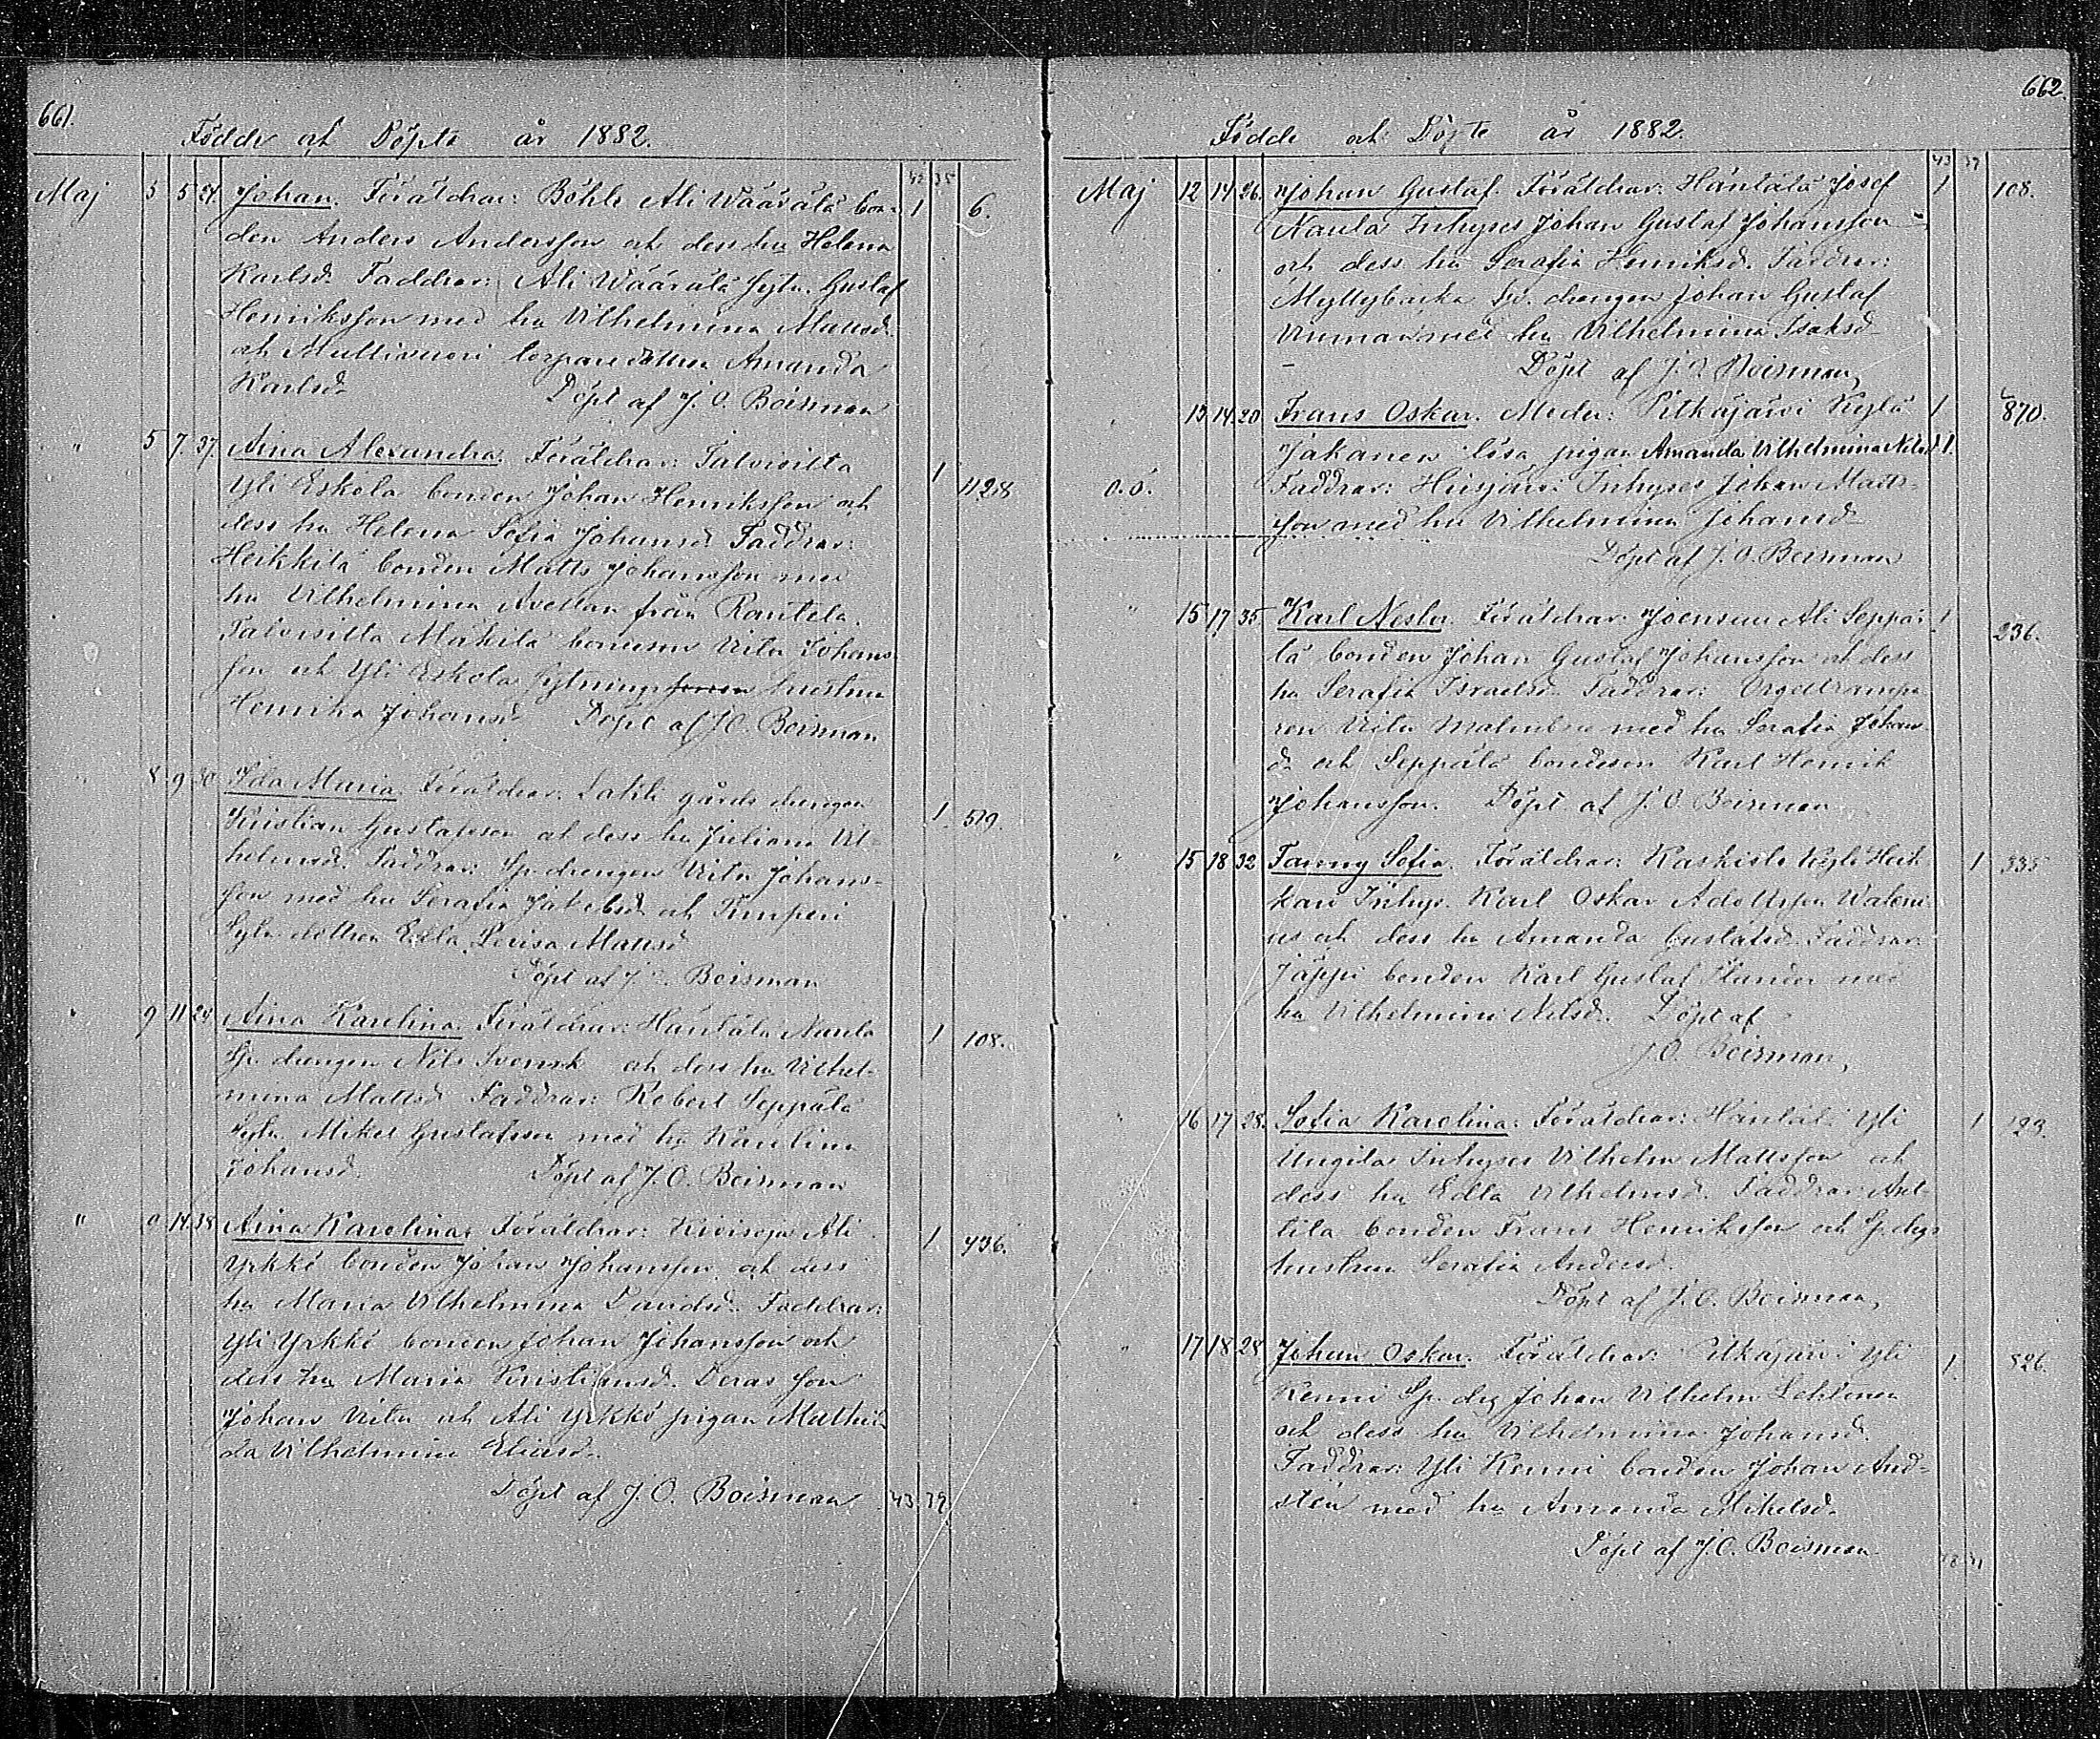 661.
Födde och Döpte år 1882.
42 35
Maj 5 5 24. Johan. Föräldrar: Böhle Ali Wäärälä bon- 1 6.
den Anders Andersson och dess hu Helena
Karlsd. Faddrar: Ali Wäärälä sytn. Gustaf
Henriksson med hu Vilhelmina Mattsd.
och Mullivuori torpare dottren Amanda
Karlsd. Döpt af J. O. Boisman
" 5 7. 37. Aina Alexandra. Föräldrar: Talvisilta 1 428
Yli Eskola bonden Johan Henriksson och
dess hu Helena Sofia Johansd. Faddrar:
Heikkilä bonden Matts Johansson med
hu Vilhelmina Avellan från Rantela.
Talvisilta Mäkilä bondeson Vitu Johans-
son och Yli Eskola sytning hustrun
Henrika Johansd. Döpt af J. O. Boisman
" 8 9 30 Ida Maria. Föräldrar: Lahti gårds drengen 1. 519.
Kristian Gustafsson och dess hu Juliana Vil-
helmsd. Faddrar: Sp. drengen Vitu Johans-
son med hu Serafia Jakobsd. och Timperi
Sytn. dottren Edla Lovisa Mattsd.
Döpt af J. O. Boisman
" 9 11 24 Aina Karolina. Föräldrar: Häntälä Naula 1 108.
Sp. drengen Nils Svensk och dess hu Vilhel-
mina Mattsd. Faddrar: Robert Seppälä
Sytn. Mikel Gustafsson med hu Karolina
Johansd. Döpt af J. O. Boisman
" 0 14. 38 Aina Karolina. Föräldrar: Kivisoja Ali 1. 436.
Yrkkö bonden Johan Johansson och dess
hu Maria Vilhelmina Davidsd. Faddrar:
Yli Yrkkö bonden Johan Johansson och
dess hu Maria Kristiansd. Deras son
Johan Vitu och Ali Yrkkö pigan Mathil-
da Vilhelmina Eliasd.
Döpt af J. O. Boisman 43. 37.
662.
Födde och Döpte år 1882.
43 37
Maj 12 14 26. Johan Gustaf. Föräldrar: Häntälä Josef 1 108.
Naula Inhyses Johan Gustaf Johansson
och dess hu Serafia Henriksd. Faddrar:
Myllybacka Sp. drengen Johan Gustaf
med hu Vilhelmina Isaksd.
Döpt af J. O. Boisman,
13 14. 20 Frans Oskar. Moder: Pitkäjärvi Kylä 1 870.
Jakanen lösa pigan Amanda Vilhelmina Nilsd. 1.
o. ö. Faddrar: Hirsjärvi Inhyses Johan Matts-
son med hu Vilhelmina Johansd.
Döpt af J. O. Boisman
" 15 17 35 Karl Nestor. Föräldrar: Joensuu Ali Seppä- 1 236.
lä bonden Johan Gustaf Johansson och dess
hu Serafia Israelsd. Faddrar: Orgeltrampa-
ren Vitu Malmberg med hu Serafia Johans-
d. och Seppälä bondeson Karl Henrik
Johansson. Döpt af J. O. Boisman
" 15 18 32 Fanny Sofia. Föräldrar: Kaskisto Kylä Heik- 1 335
kari Inhys. Karl Oskar Adolfsson Waleni-
us och dess hu Amanda Gustafsd. Faddrar:
Jäppi bonden Karl Gustaf Flander med
hu Vilhelmina Nilsd. Döpt af
J. O. Boisman,
" 16 17 28. Sofia Karolina: Föräldrar: Häntälä Yli 1 123.
Uugila Inhyses Vilhelm Mattsson och
dess hu Edla Vilhelmsd. Faddrar: Ant-
tila bonden Frans Henriksson och Sp. drgs
hustrun Serafia Andersd.
Döpt af J. O. Boisman,
" 17 18 28 Johan Oskar. Föräldrar: Pitkäjärvi Yli 1. 826.
Kenni Sp. drg Johan Vilhelm Lehtonen
och dess hu Vilhelmina Johansd.
Faddrar: Yli Kenni bonden Johan And-
stén med hu Amanda Mikelsd.
Döpt af J. O. Boisman